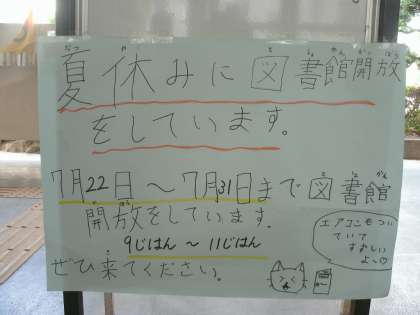 夏休みに図書館開放
をしています。
7月22日〜7月31日まで図書館
開放をしています。
9じはん〜11じはん
ぜひ来てください。
エアコンもつい
ていて
すずしい
よ〜